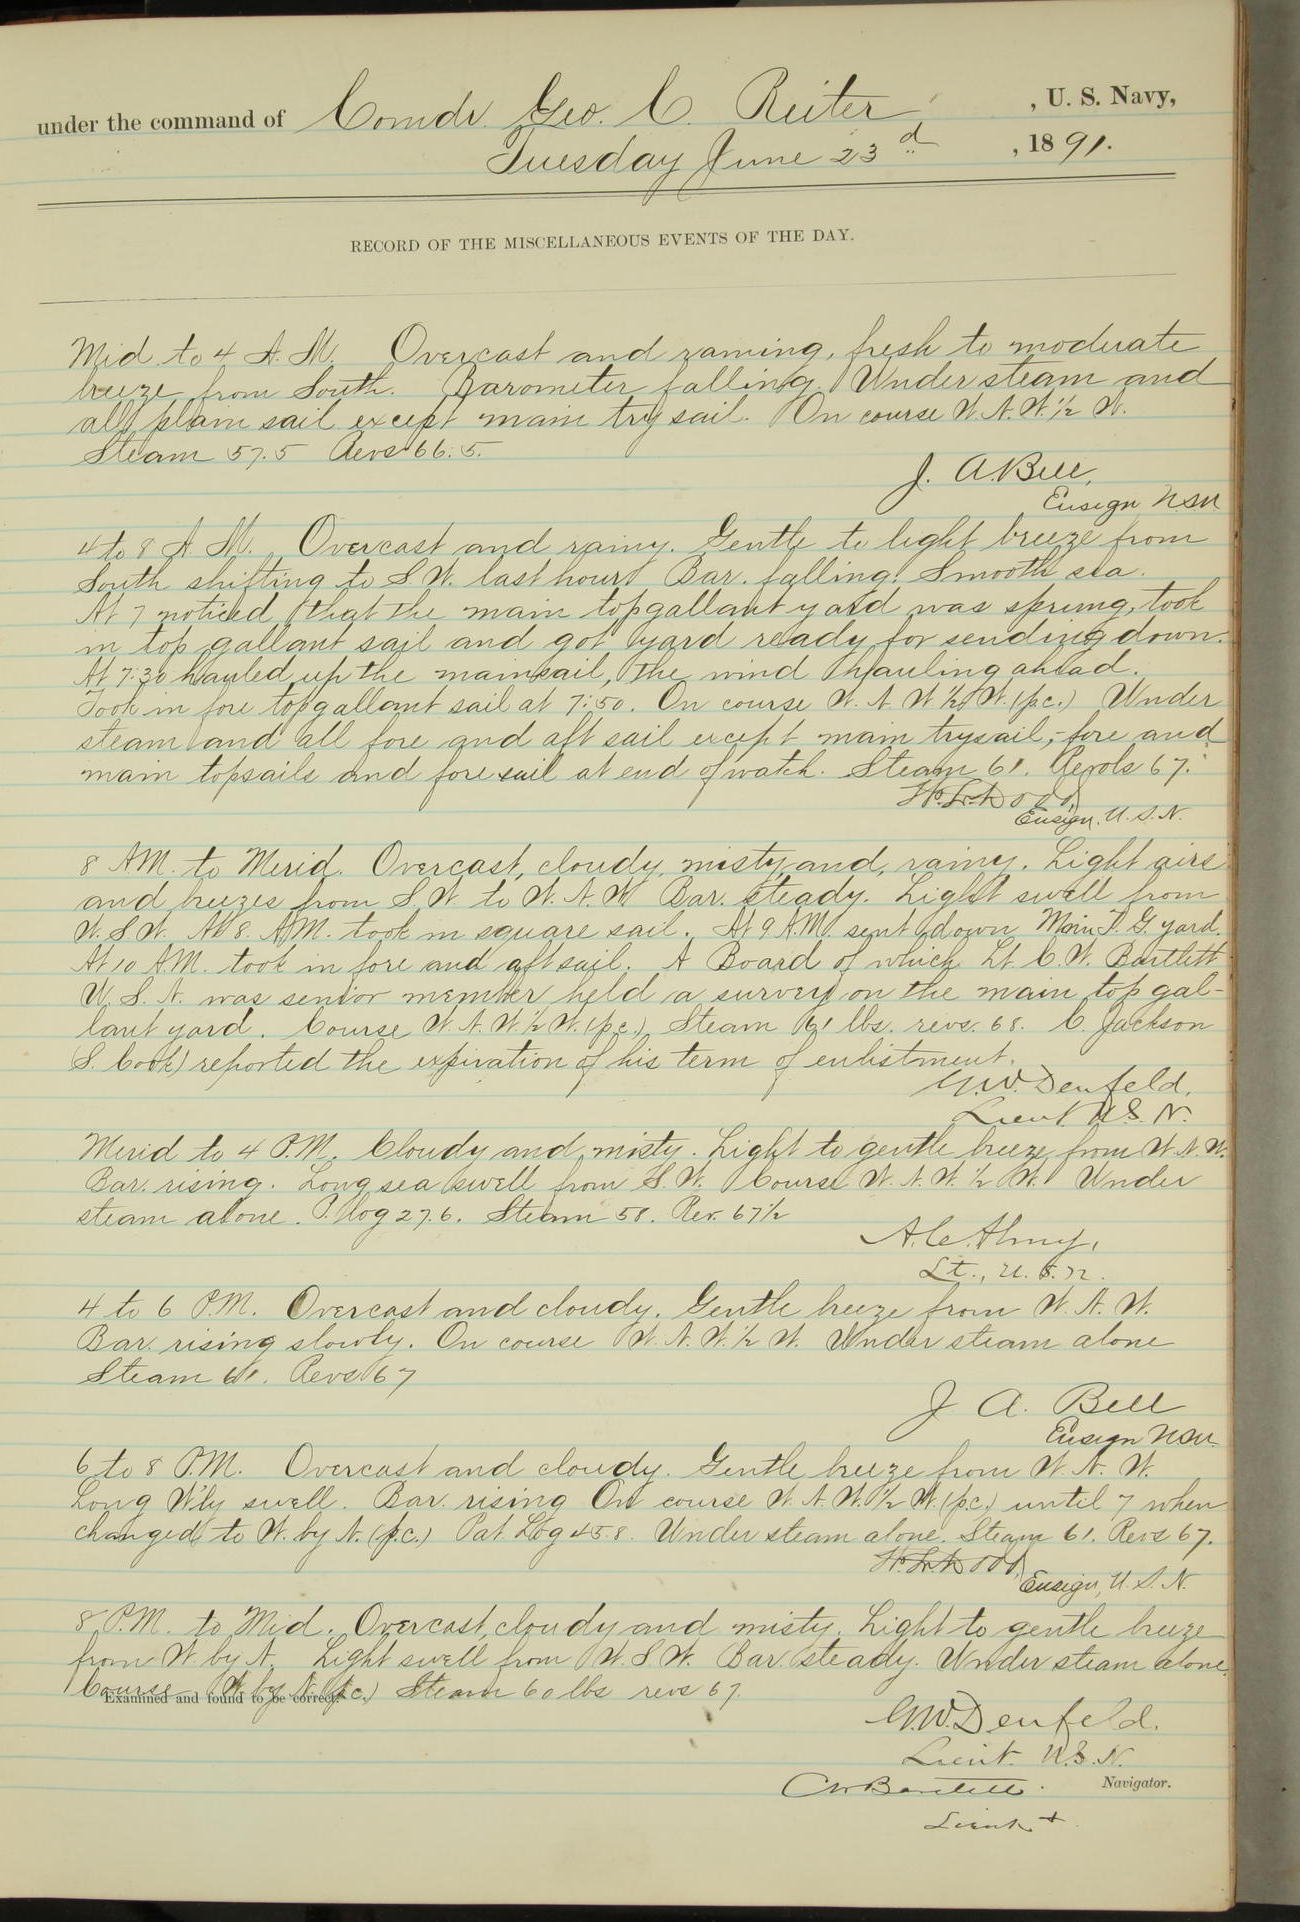 under the command of Comdr. Geo. C. Reiter, , U. S. Navy,
Tuesday June 23d , 1891.
RECORD OF THE MISCELLANEOUS EVENTS OF THE DAY.
Mid to 4 A.M. Overcast and raining, fresh to moderate
breeze from South. Barometer falling. Under steam and
all plain sail except main try sail. On course W.N.W.½ W.
Steam 57.5 Revs 66.5.
J. A. Bell,
Ensign USN
4 to 8 A.M. Overcast and rainy. Gentle to light breeze from
South shifting to S.W. last hour. Bar. falling. Smooth sea.
At 7 noticed that the main topgallant yard was sprung, took
in top gallant sail and got yard ready for sending down.
At 7:30 hauled up the mainsail, the wind hauling ahead.
Took in fore topgallant sail at 7:50. On course W. N. W ½ W. (p.c.) Under
steam and all fore and aft sail except main trysail,- fore and
main topsails and foresail at end of watch. Steam 61. Revols 67.
Ensign, U.S.N.
8 AM. to Merid. Overcast, cloudy, misty and rainy. Light airs
and breezes from S.W. to W.N.W. Bar. steady. Light swell from
W.S.W. At 8. A.M. took in square sail. At 9 A.M. sent down Main T. G. yard.
At 10 A.M. took in fore and aft sail. A Board of which Lt. C. W. Bartlett
U.S.N. was senior member held a survey on the main top gal-
lant yard. Course W.N.W.½ W. (p.c.) Steam 61 lbs. revs. 68. C. Jackson
(S. Cook) reported the expiration of his term of enlistment.
G.W. Denfeld,
Lieut. U.S.N.
Merid to 4 P.M. Cloudy and misty. Light to gentle breeze from W.N.W.
Bar. rising. Long sea swell from S.W. Course W.N.W.½ W. Under
steam alone. P. log 27.6. Steam 58. Rev. 67½
A.C. Almy,
Lt., U.S.N.
4 to 6 P.M. Overcast and cloudy. Gentle breeze from W.N.W.
Bar. rising slowly. On course W.N.W.½ W. Under steam alone
Steam 61. Revs 67
J A. Bell
Ensign USN.
6 to 8 P.M. Overcast and cloudy. Gentle breeze from W.N.W.
Long W'ly swell. Bar. rising On course W.N.W.½ W. (p.c.) until 7 when
changed to W. by N. (p.c.) Pat. Log 45.8. Under steam alone. Steam 61. Revs 67.
Ensign, U.S.N.
8 P.M. to Mid. Overcast, cloudy and misty. Light to gentle breeze
from W. by N. Light swell from W.S.W. Bar. steady. Under steam alone.
Course W. by N. (p.c.) Steam 60 lbs revs 67.
Examined and found to be correct.
G.W. Denfeld.
Lieut. U.S.N.
C W Bartlett. Navigator.
Lieut